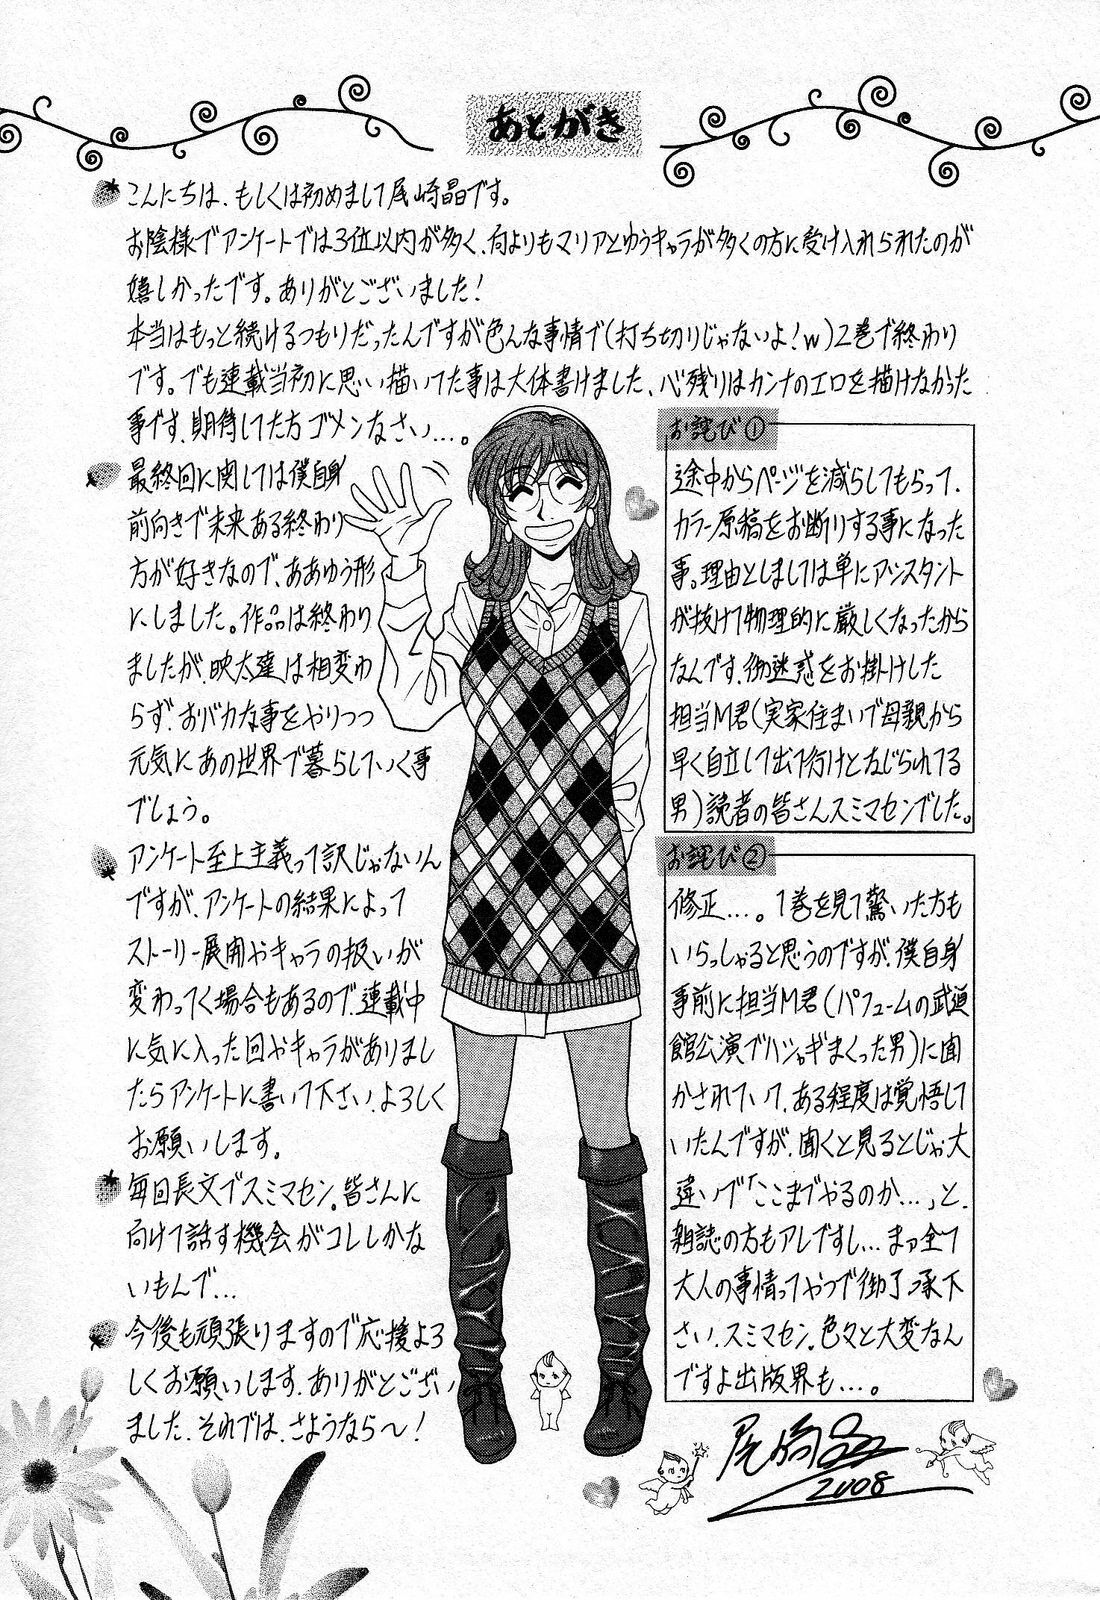 あとがき
こんにちは、もしくは初めまして尾崎晶です。
お陰様でアンケートでは3位以内が多く、何よりもマリアとゆうキャラが多くの方に受け入れられたのが
嬉しかったです。ありがとございました!
本当はもっと続けるつもりだったんですが色んな事情で(打ち切りじゃないよ!w)2巻で終わり
です。でも連載当初に思い描いてた事は大体書けました、心残りはカンナのエロを描けなかった
事です、期待してた方ゴメンなさい…。
最終回に関しては僕自身
前向きで未来ある終わり
方が好きなので、ああゆう形
にしました。作品は終わり
ましたが、映太達は相変わ
らず、おバカな事をやりつつ
元気にあの世界で暮らしていく事
でしょう。
アンケート至上主義って訳じゃないん
ですが、アンケートの結果によって
ストーリー展開やキャラの扱いが
変わってく場合もあるので、連載中
に気に入った回やキャラがありまし
たらアンケートに書いて下さい、よろしく
お願いします。
毎回長文でスミマセン。皆さんに
向けて話す機会がコレしかな
いもんで…
今後も頑張りますので応援よろ
しくお願いします、ありがとござい
ました、それでは、さようなら〜!
お詫び①
途中からページを減らしてもらって、
カラー原稿をお断りする事になった
事。理由としましては単にアシスタント
が抜けて物理的に厳しくなったから
なんです、御迷惑をお掛けした
担当M君(実家住まいで母親から
早く自立して出て行けとなじられてる
男)読者の皆さんスミマセンでした。
お詫び②
修正…。1巻を見て驚いた方も
いらっしゃると思うのですが、僕自身
事前に担当M君(パフュームの武道
館公演でハシャギまくった男)に聞
かされていて、ある程度は覚悟して
いたんですが、聞くと見るとじゃ大
違いで「ここまでやるのか…」と、
雑誌の方もアレですし…まァ全て
大人の事情ってやつで御了承下
さい、スミマセン。色々と大変なん
ですよ出版界も…。
尾崎晶
2008